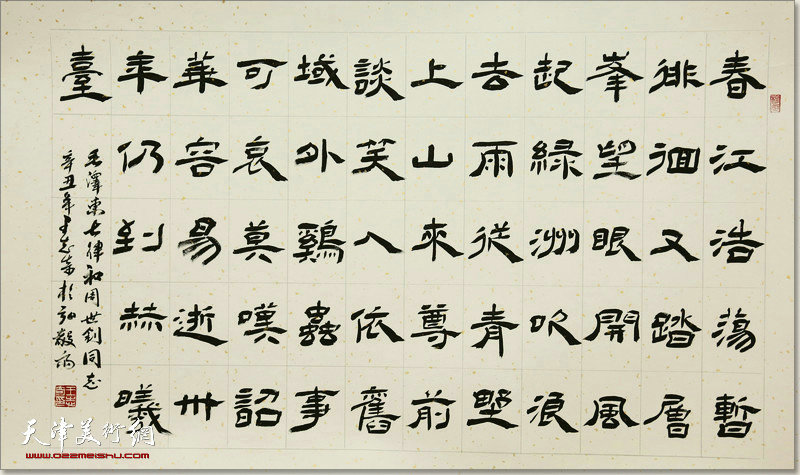 春江浩蕩暫
徘徊又踏層
峯望眼開風
起綠洲吹浪
去雨從青野
上山來尊前
談笑人依舊
域外鷄蟲事
可哀莫嘆韶
華容易逝卅
年仍到赫曦
臺
毛澤東七律和周世釗同志
辛丑年於
天津美術網
www.022meishu.com